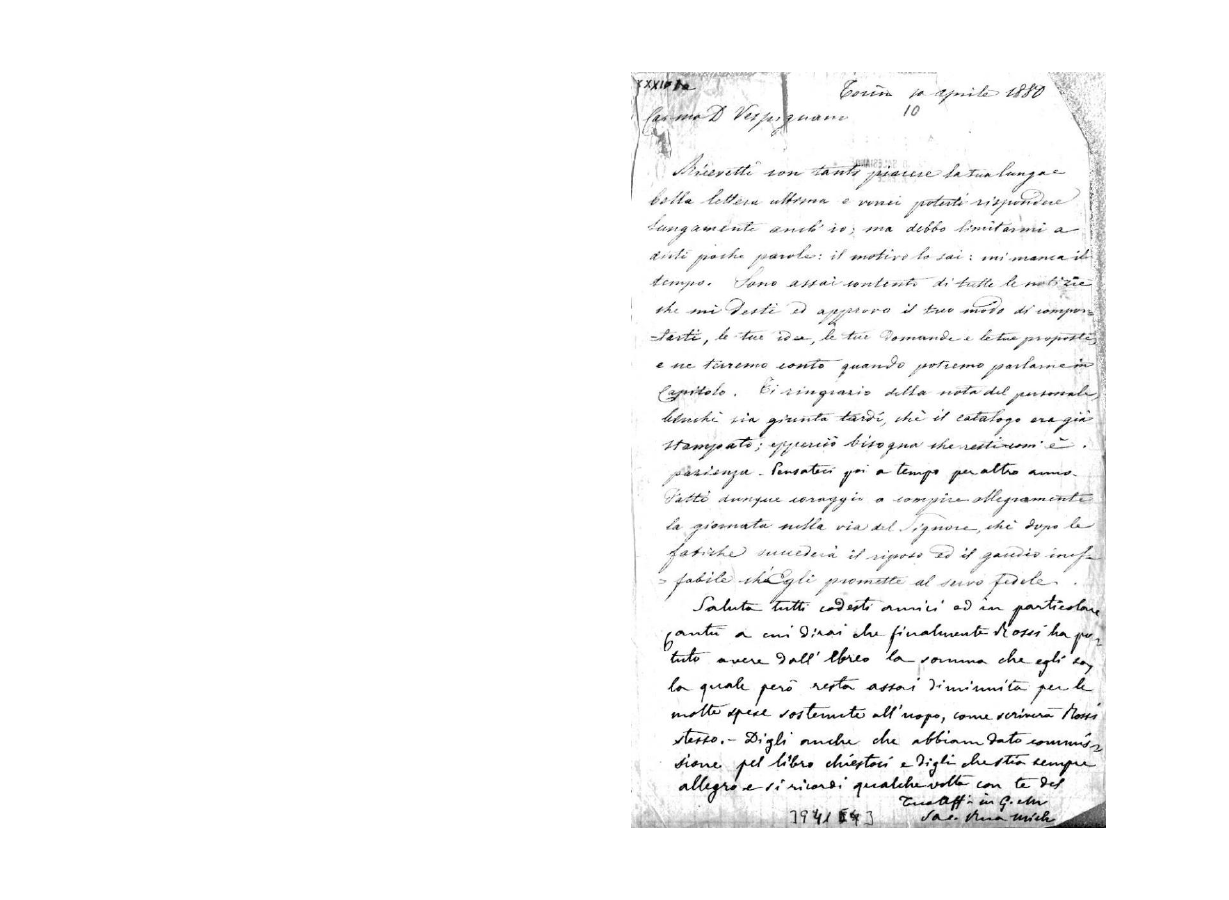 Torino 10 aprile 1880
10
Car.mo D Vespignani
Ricevetti con tanto piacere la tua lunga e
bella lettera ultima e vorrei poterti rispondere
lungamente anch' io; ma debbo limitarmi a
dirti poche parole: il motivo lo sai: mi manca il
tempo. Sono assai contento di tutte le notizie
che mi desti ed approvo il tuo modo di compor=
tarti, le tue idee, le tue domande e le tue proposte,
e ne terremo conto quando potremo parlarne in
Capitolo. Ti ringrazio della nota del personale,
benchè sia giunta tardi, chè il catalogo era già
stampato; epperciò bisogna che resti com' è.
pazienza. Pensateci poi a tempo per altro anno.
Fatti dunque coraggio a compire allegramente
la giornata nella via del Signore, chè dopo le
fatiche succederà il riposo ed il gaudio inef=
=fabile che Egli promette al servo fedele.
Saluta tutti codesti amici ed in particolare
a cui dirai che finalmente Rossi ha po=
tuto avere dall' Ebreo la somma che egli sa,
la quale però resta assai diminuita per le
molte spese sostenute all' uopo, come scriverà Rossi
stesso. - Digli anche che abbiam dato commis=
sione pel libro chiestoci e digli che stia sempre
allegro e si ricordi qualche volta con te del
Tuo aff. in G. e M.
Sac. Rua Mich